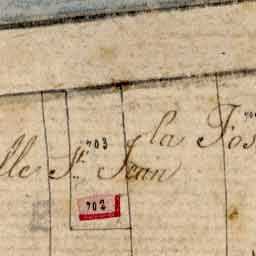 703
la Fos
lle St. Jean
702